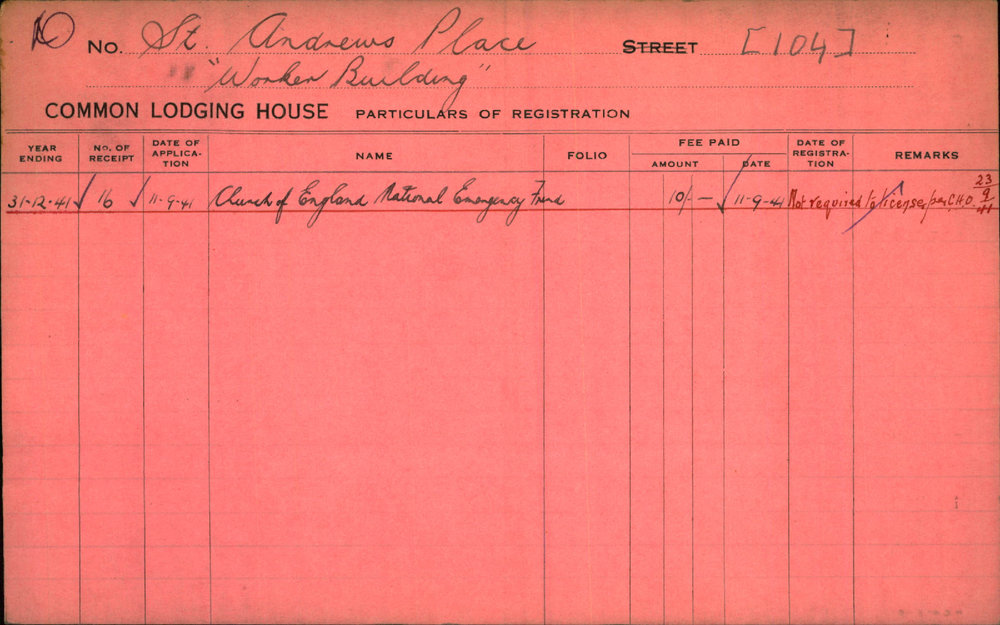 No. St. Andrews Place STREET [104]
"Worker Building"
COMMON LODGING HOUSE PARTICULARS OF REGISTRATION
YEAR ENDING
No. OF RECEIPT
DATE OF APPLICA-TION
NAME
FOLIO
FEE PAID
AMOUNT
DATE
DATE OF REGISTRA-TION
REMARKS
31-12-41 16 11-9-41 Church of England National Emergency Fund 10/- 11-9-41 Not required to license, per C.H.O. 23/9/41